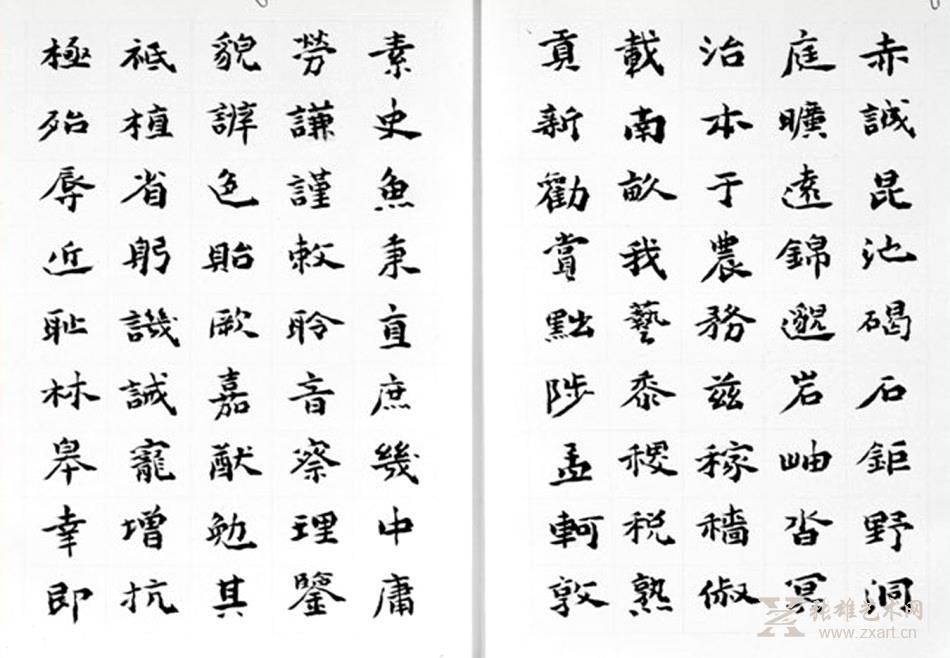 赤誠昆池碣石鉅野洞
庭曠遠錦邈岩岫杳冥
治本于農務兹稼穡俶
載南畝我藝黍稷税熟
貢新勸賞黜陟孟軻敦
素史魚秉直庶幾中庸
勞謙謹敕聆音察理鑒
貌辨色貽厥嘉猷勉其
祗植省躬譏誡寵增抗
極殆辱近耻林皋幸即
张雄艺术网
www.zxart.cn